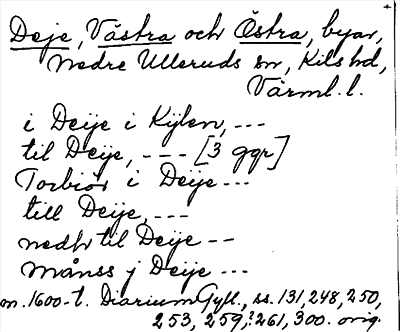 Deje, Västra och Östra, byar,
Nedre Ulleruds sn, Kils hd,
Värml. l.
i Deije i Kijlen, ---
til Deije, --- [3 ggr]
Torbiör i Deije ---
till Deije, ---
nedhr til Deije --
Månss j Deije ---
m. 1600-t. Diarium Gyll., ss. 131, 248, 250,
253, 259, 261, 300. orig.